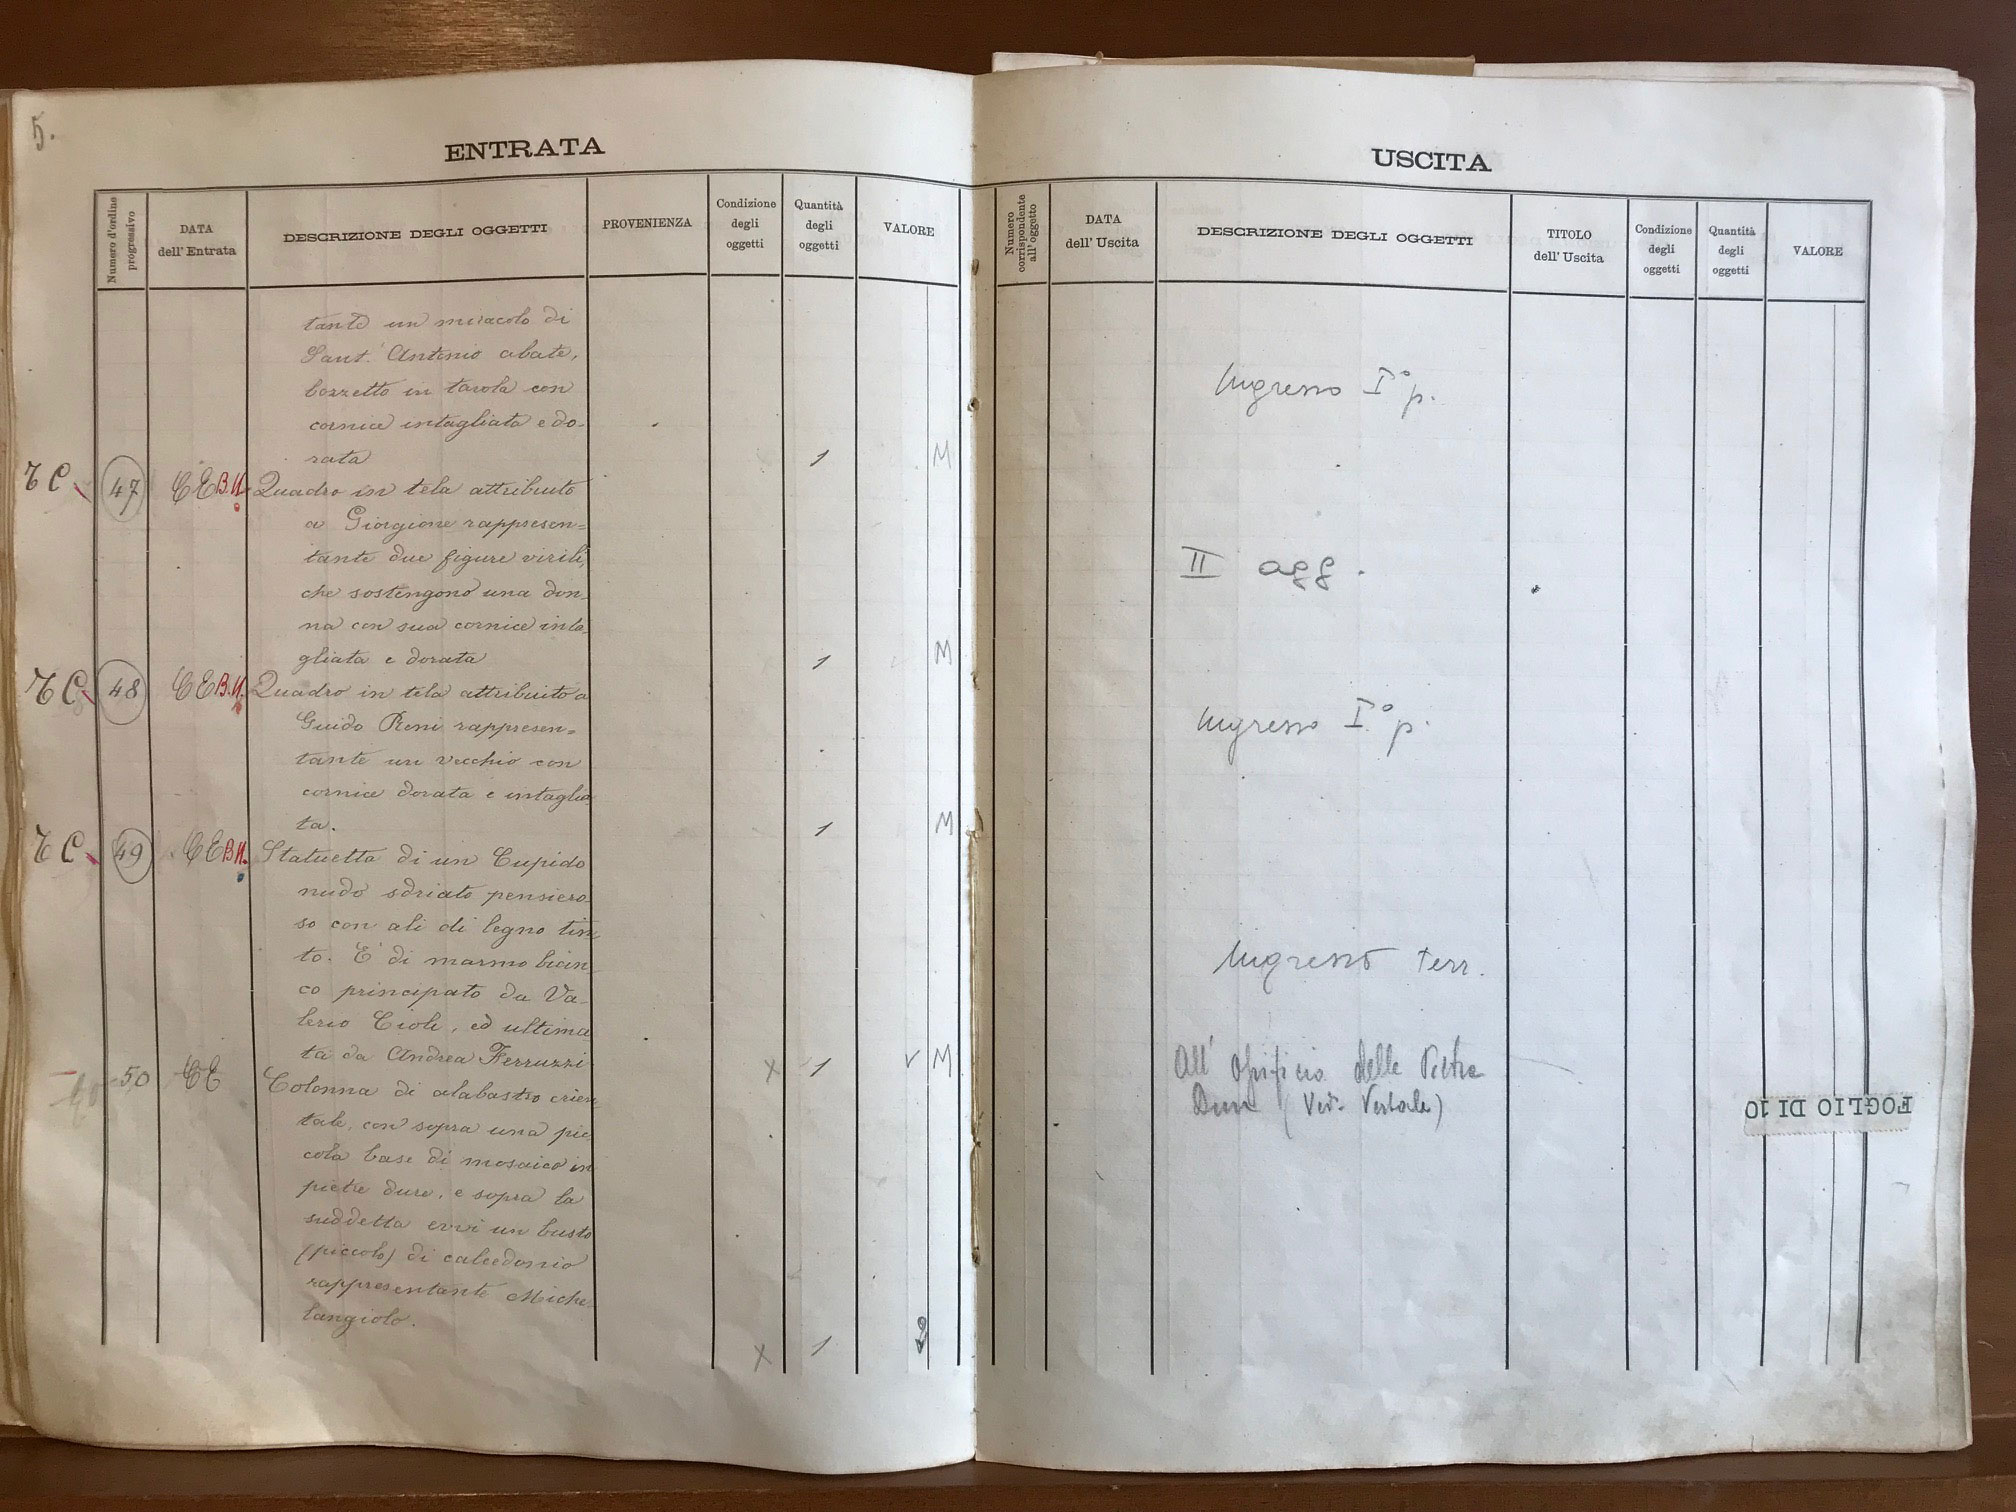 5.
ENTRATA
Numero d'ordine progressivo
DATA dell' Entrata
DESCRIZIONE DEGLI OGGETTI
PROVENIENZA
Condizione degli oggetti
Quantità degli oggetti
VALORE
tante un miracolo di
Sant' Antonio abate,
bozzetto in tavola con
cornice intagliata e do-
rata 1 M
T C 47 C E B.N. Quadro in tela attribuito
a Giorgione rappresen=
tante due figure virili,
che sostengono una don-
na con sua cornice inta-
gliata e dorata 1 M
T C 48 C E B.N. Quadro in tela attribuito a
Guido Reni rappresen=
tante un vecchio con
cornice dorata e intaglia
ta. 1 M
T C 49 C E B N. Statuetta di un Cupido
nudo sdriato pensiero-
so con ali di legno tin-
to. E' di marmo bian-
co principato da Va-
lerio Cioli, ed ultima
ta da Andrea Ferruzzi x 1 v M
50 C E Colonna di alabastro orien
tale, con sopra una pic
cola base di mosaico in
pietre dure, e sopra la
suddetta evvi un busto
(piccolo) di calcedonio
rappresentante Miche-
langiolo. x 1 2
USCITA
Numero corrispondente all' oggetto
DATA dell' Uscita
DESCRIZIONE DEGLI OGGETTI
TITOLO dell' Uscita
Condizione degli oggetti
Quantità degli oggetti
VALORE
Ingresso I° p.
II agg.
Ingresso I.° p.
Ingresso terr.
All' Opificio delle Pietre
Dure (Ved. Verbale)
FOGLIO DI 10